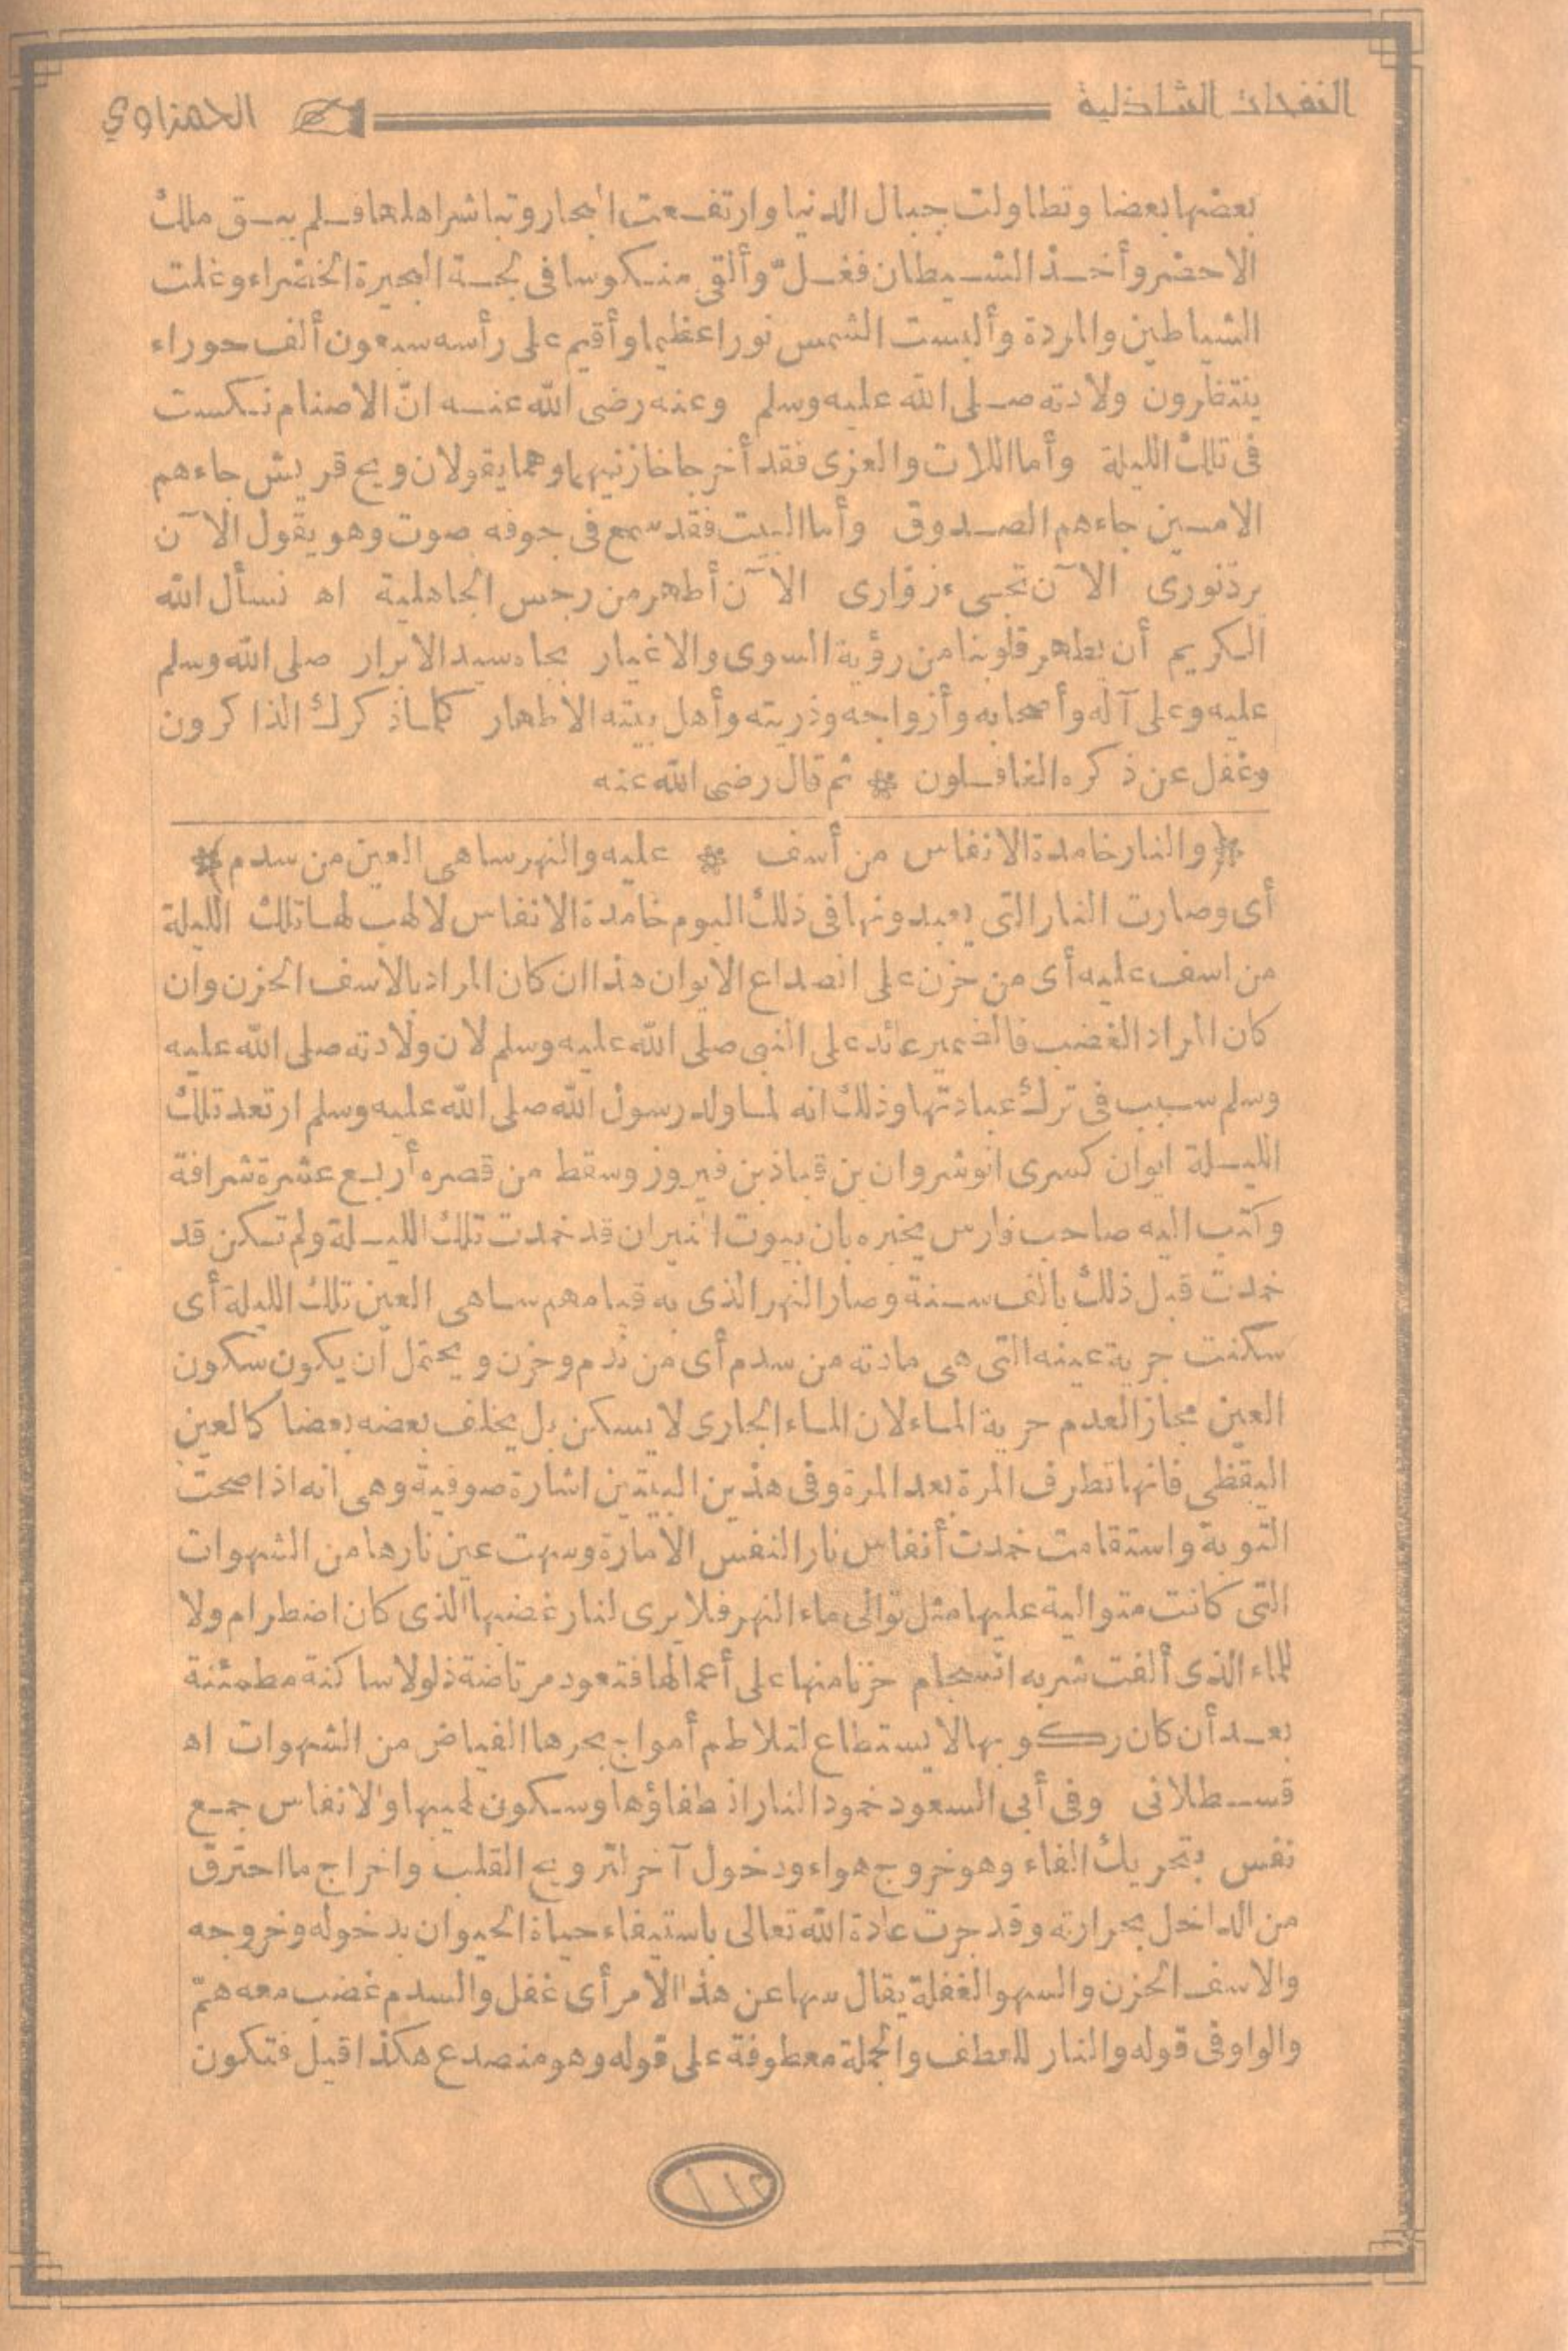 النفحات الشاذلية الحمزاوي
بعضها بعضا وتطاولت جبال الدنيا وارتفعت البحار وتباشر اهلها فلم يبق ملك
الا حضر وأخذ الشيطان فغلّ وألقى منكوسا فى لجة البحيرة الخضراء وغلت
الشياطين والمردة وألبست الشمس نورا عظيما وأقيم على رأسه سبعون ألف حوراء
ينتظرون ولادته صلى الله عليه وسلم وعنه رضى الله عنه انّ الاصنام نكست
فى تلك الليلة وأما اللات والعزى فقد أخرجا خازنيهما وهما يقولان ويح قريش جاءهم
الامين جاءهم الصدوق وأما البيت فقد سمع فى جوفه صوت وهو يقول الآن
يردّ نورى الآن تجىء زوّارى الآن أطهر من رجس الجاهلية اه نسأل الله
الكريم أن يطهر قلوبنا من رؤية السوى والاغيار بجاه سيد الابرار صلى الله وسلم
عليه وعلى آله وأصحابه وأزواجه وذريته وأهل بيته الاطهار كلما ذكرك الذاكرون
وغفل عن ذكره الغافلون * ثم قال رضى الله عنه
(والنار خامدة الانفاس من أسف * عليه والنهر ساهى العين من سدم)
أى وصارت النار التى يعبدونها فى ذلك اليوم خامدة الانفاس لا لهب لها تلك الليلة
من اسف عليه أى من حزن على انصداع الايوان هذا ان كان المراد بالاسف الحزن وان
كان المراد الغضب فالضمير عائد على النبى صلى الله عليه وسلم لان ولادته صلى الله عليه
وسلم سبب فى ترك عبادتها وذلك انه لما ولد رسول الله صلى الله عليه وسلم ارتعد تلك
الليلة ايوان كسرى انوشروان بن قباذ بن فيروز وسقط من قصره أربع عشرة شرافة
وكتب اليه صاحب فارس يخبره بان بيوت النيران قد خمدت تلك الليلة ولم تكن قد
خمدت قبل ذلك بالف سنة وصار النهر الذى به قيامهم ساهى العين تلك الليلة أى
سكنت جرية عينه التى هى مادته من سدم أى من ندم وحزن ويحتمل أن يكون سكون
العين مجاز العدم جرية الماء لان الماء الجارى لا يسكن بل يخلف بعضه بعضا كالعين
اليقظى فانها تطرف المرة بعد المرة وفى هذين البيتين اشارة صوفية وهى انه اذا صحت
التوبة واستقامت خمدت أنفاس نار النفس الامارة وسهت عين نارها من الشهوات
التى كانت متوالية عليها مثل توالى ماء النهر فلا يرى لنار غضبها الذى كان اضطرام ولا
للماء الذى ألفت شربه انسجام حزنا منها على أعمالها فتعود مرتاضة ذلولا ساكنة مطمئنة
بعد أن كان ركوبها لا يستطاع لتلاطم أمواج بحرها الفياض من الشهوات اه
قسطلانى وفى أبى السعود خمود النار انطفاؤها وسكون لهيبها والانفاس جمع
نفس بتحريك الفاء وهو خروج هواء ودخول آخر لترويح القلب واخراج ما احترق
من الداخل بحرارته وقد جرت عادة الله تعالى باستيفاء حياة الحيوان بدخوله وخروجه
والاسف الحزن والسهو الغفلة يقال سها عن هذا الامر أى غفل والسدم غضب معه همّ
والواو فى قوله والنار للعطف والجملة معطوفة على قوله وهو منصدع هكذا قيل فتكون